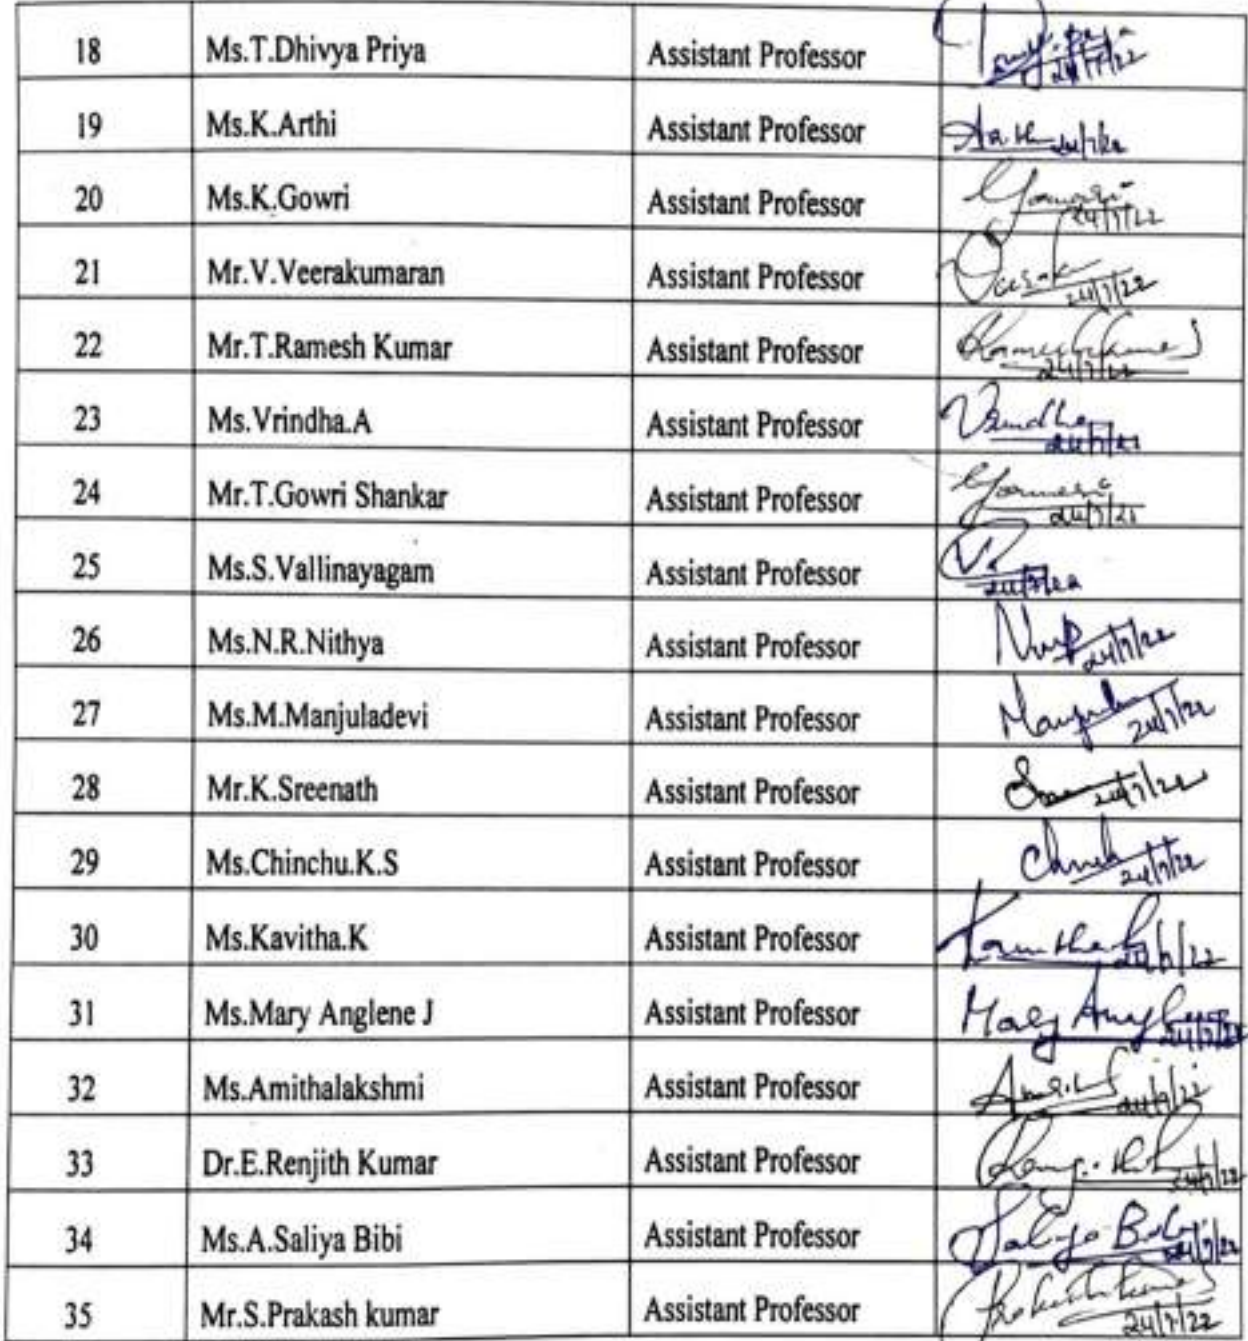 18 Ms.T.Dhivya Priya Assistant Professor
19 Ms.K.Arthi Assistant Professor 24/7/22
20 Ms.K.Gowri Assistant Professor 24/7/22
21 Mr.V.Veerakumaran Assistant Professor 24/7/22
22 Mr.T.Ramesh Kumar Assistant Professor 24/7/22
23 Ms.Vrindha.A Assistant Professor
24 Mr.T.Gowri Shankar Assistant Professor
25 Ms.S.Vallinayagam Assistant Professor 24/7/22
26 Ms.N.R.Nithya Assistant Professor 24/7/22
27 Ms.M.Manjuladevi Assistant Professor 24/7/22
28 Mr.K.Sreenath Assistant Professor 24/7/22
29 Ms.Chinchu.K.S Assistant Professor 24/7/22
30 Ms.Kavitha.K Assistant Professor 24/7/22
31 Ms.Mary Anglene J Assistant Professor 24/7/22
32 Ms.Amithalakshmi Assistant Professor 24/7/22
33 Dr.E.Renjith Kumar Assistant Professor 24/7/22
34 Ms.A.Saliya Bibi Assistant Professor 24/7/22
35 Mr.S.Prakash kumar Assistant Professor 24/7/22